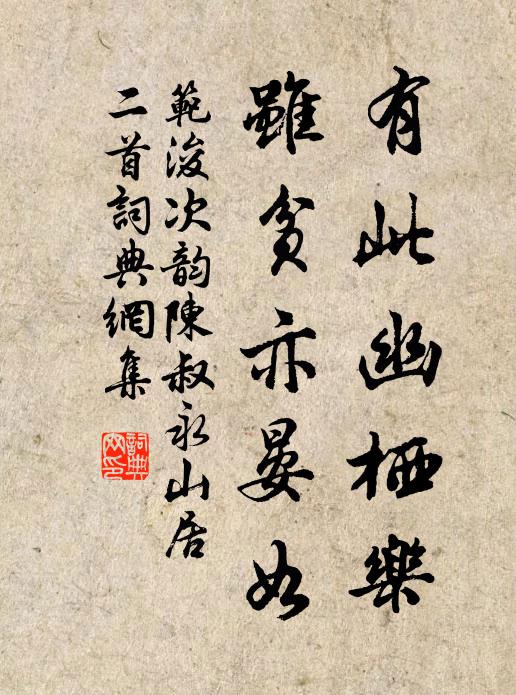 有此幽栖樂
雖貧亦晏如
範浚次韵陳叔永山居
二首詞典網集
詞典
网印